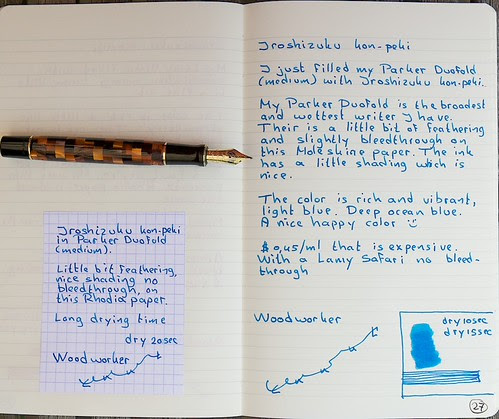 Iroshizuku kon-peki
in Parker Duofold
(medium).
Little bit feathering,
nice shading no
bleedthrough, on
this Rhodia paper.
Long drying time
dry 20sec
Woodworker
Iroshizuku kon-peki
I just filled my Parker Duofold
(medium) with Iroshizuku kon-peki.
My Parker Duofold is the broadest
and wettest writer I have.
Their is a little bit of feathering
and slightly bleedthrough on
this Moleskine paper. The ink
has a little shading which is
nice.
The color is rich and vibrant,
light blue. Deep ocean blue.
A nice happy color
$ 0,45/ml that is expensive.
With a Lamy Safari no bleed-
through
Woodworker
dry 10sec
dry 15sec
27